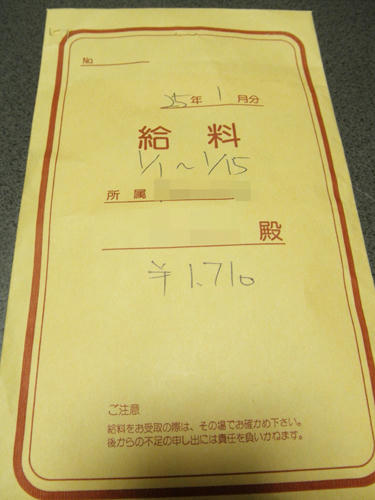 No
25年 1月分
給料
1/1～1/15
所属
殿
¥1.710
ご注意
給料をお受取の際は、その場でお確かめ下さい。
後からの不足の申し出には責任を負いかねます。